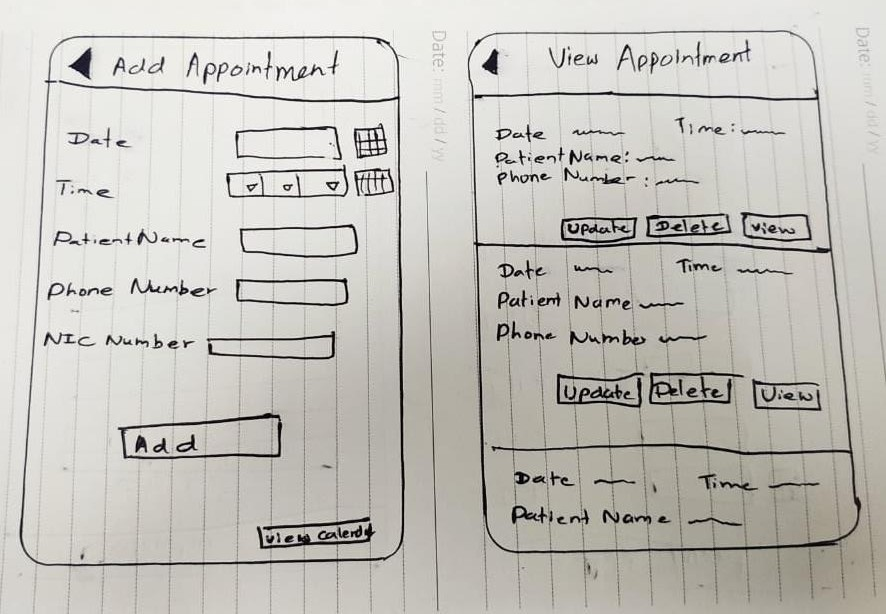 Add Appointment
Date
Time
Patient Name
Phone Number
NIC Number
Add
View Calend
Date: mm / dd / yy
View Appointment
Date Time:
Patient Name:
Phone Number:
Update Delete View
Date Time
Patient Name
Phone Number
Update Delete View
Date Time
Patient Name
Date: mm / dd / yy